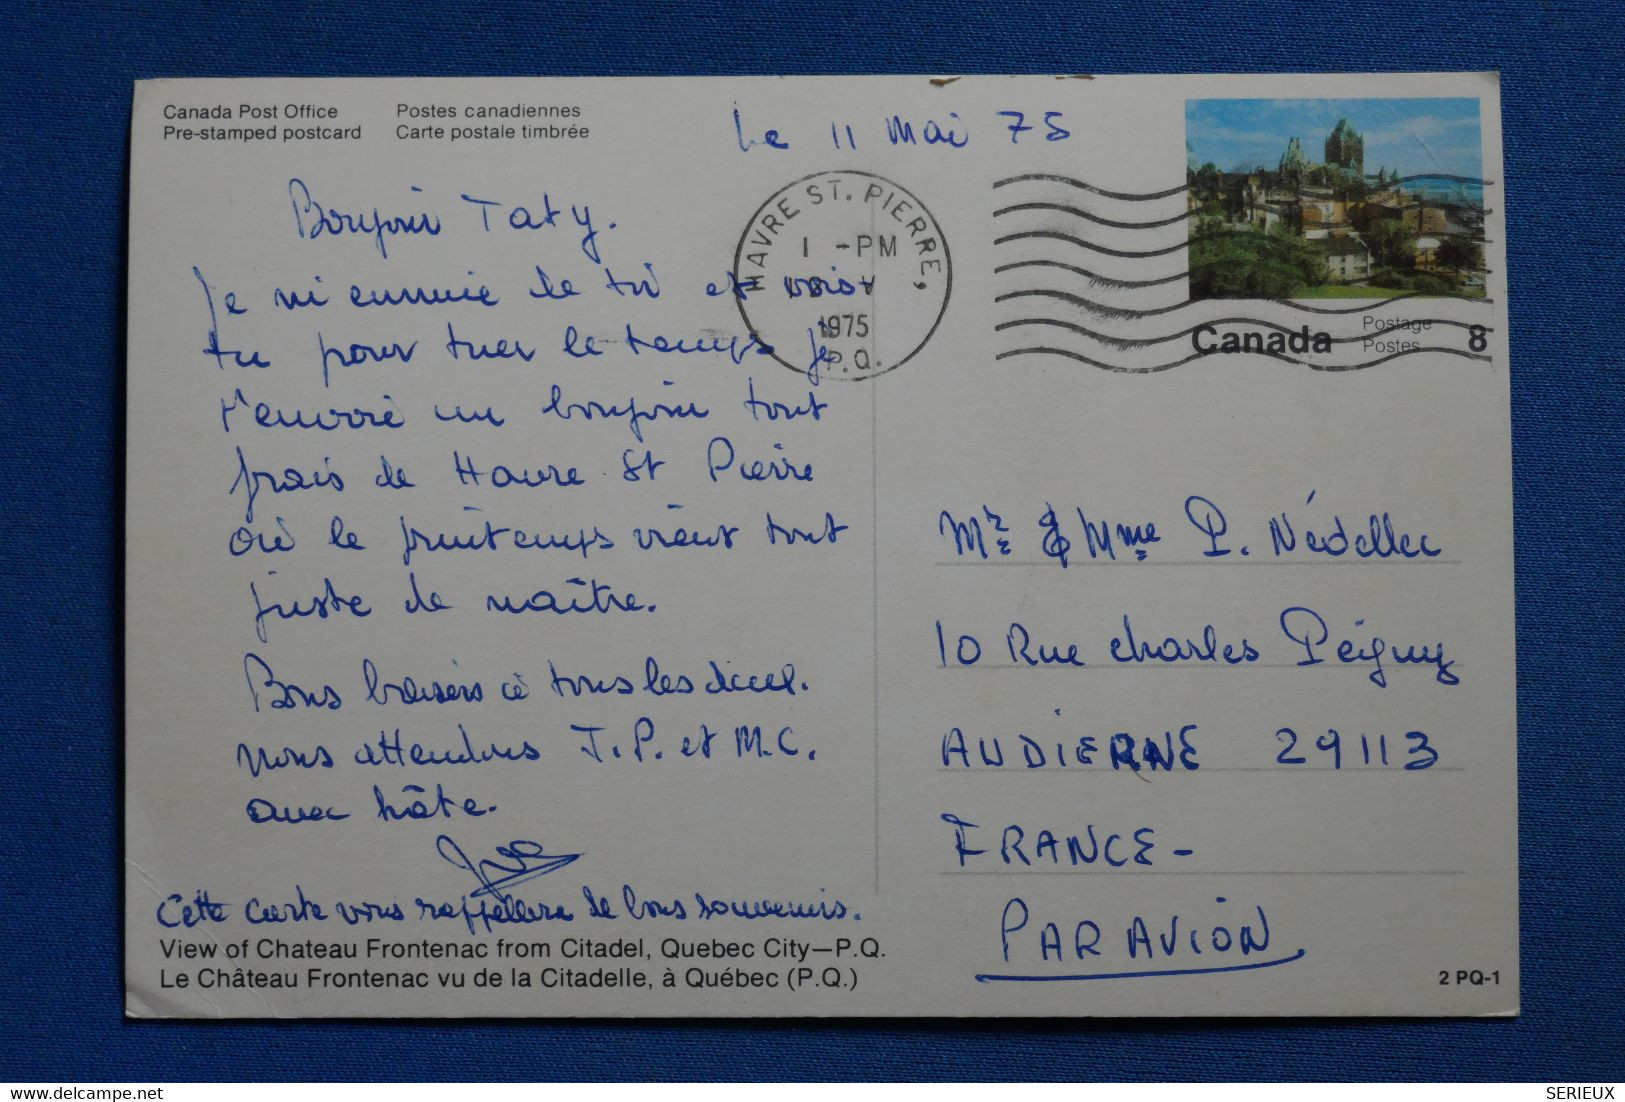 Canada Post Office
Pre-stamped postcard
Postes canadiennes
Carte postale timbrée
Le 11 Mai 75
HAVRE ST. PIERRE,
1 -PM
V
1975
P.Q.
Canada
Postage
Postes
8
Bonjour Taty.
Je m'ennuie de toi et vois-
tu pour tuer le temps je
t'envoie un bonjour tout
frais de Havre St Pierre
où le printemps vient tout
juste de naître.
Bons baisers à tous les deux.
Nous attendons J.P. et M.C.
avec hâte.
Cette carte vous rappellera de bons souvenirs.
Mr & Mme P. Nédellec
10 Rue Charles Péiguy
AUDIERNE 29113
FRANCE-
PAR AVION
View of Chateau Frontenac from Citadel, Quebec City—P.Q.
Le Château Frontenac vu de la Citadelle, à Québec (P.Q.)
2 PQ-1
https://www.delcampe.net
SERIEUX